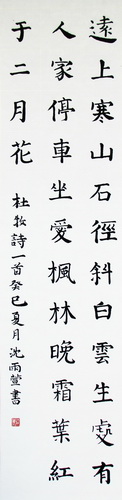 遠上寒山石徑斜白雲生處有
人家停車坐愛楓林晚霜葉紅
于二月花
杜牧詩一首癸巳夏月沈雨萱書